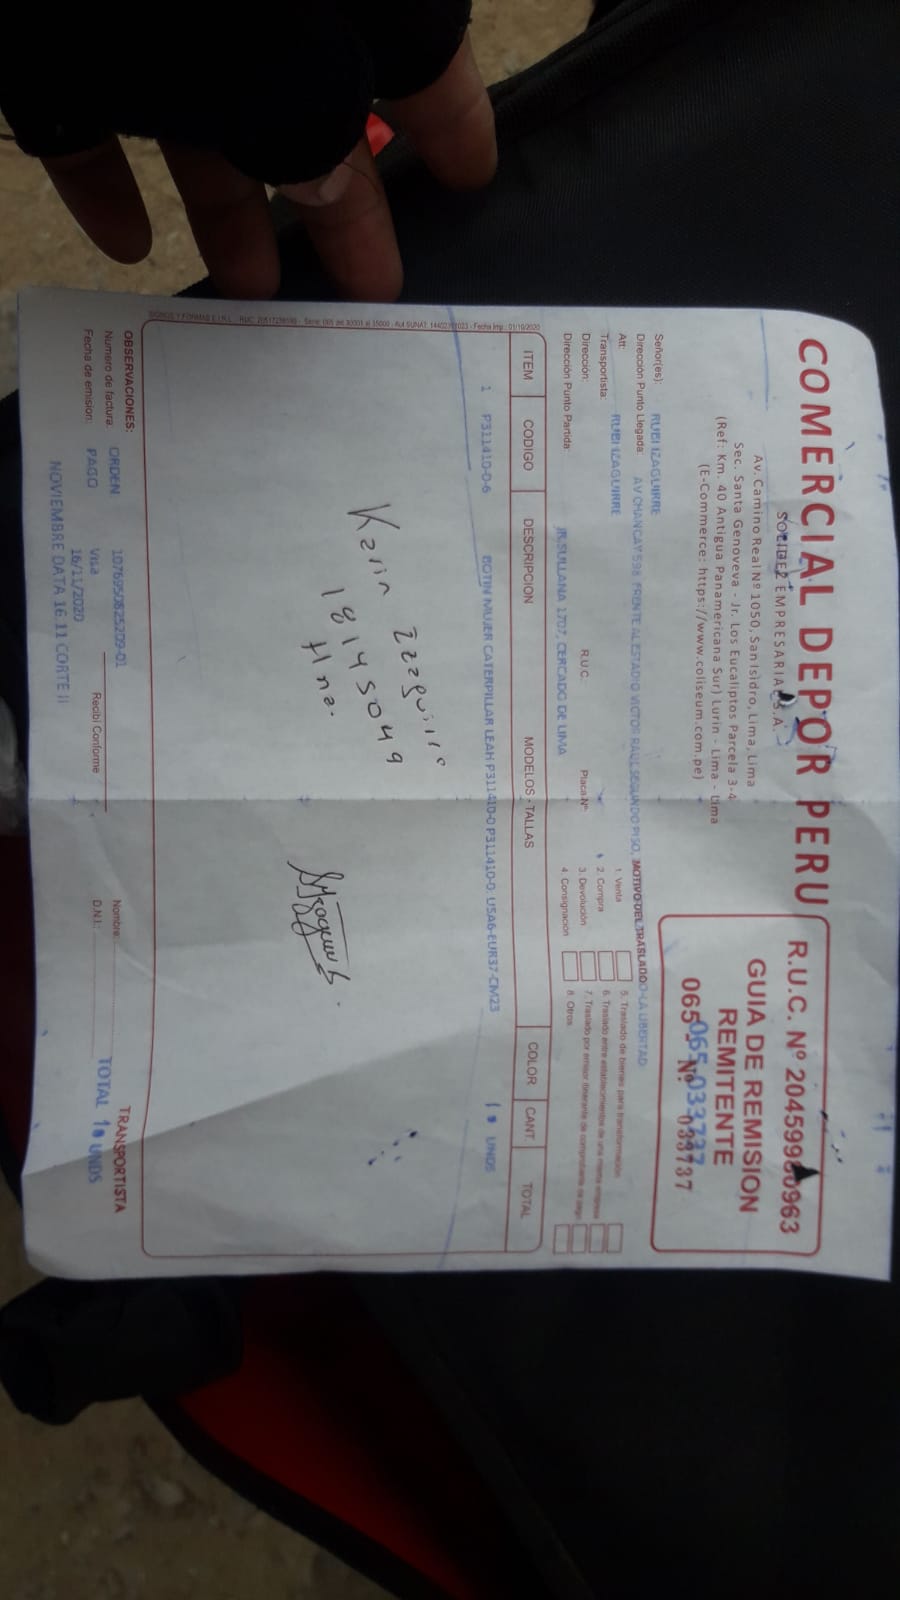 COMERCIAL DEPOR PERU
SOLIDEZ EMPRESARIAL S.A.
Av. Camino Real Nº 1050, San Isidro, Lima, Lima
Sec. Santa Genoveva - Jr. Los Eucaliptos Parcela 3-4
(Ref: Km. 40 Antigua Panamericana Sur) Lurin - Lima - Lima
(E-Commerce: https://www.coliseum.com.pe)
R.U.C. Nº 20459980963
GUIA DE REMISION
REMITENTE
065-033737
065- Nº 033737
Señor(es): RUBI IZAGUIRRE
Dirección Punto Llegada: AV CHANCAY 598 FRENTE AL ESTADIO VICTOR RAUL SEGUNDO PISO, LA LIBERTAD
MOTIVO DEL TRASLADO
Att:
Transportista: RUBI IZAGUIRRE
Dirección: R.U.C.: Placa Nº:
Dirección Punto Partida: JR.SULLANA 1707, CERCADO DE LIMA
1. Venta
2. Compra
3. Devolución
4. Consignación
5. Traslado de bienes para transformación
6. Traslado entre establecimientos de una misma empresa
7. Traslado por emisor itinerante de comprobante de pago
8. Otros
ITEM CODIGO DESCRIPCION MODELOS - TALLAS COLOR CANT. TOTAL
1 P311410-0-6 BOTIN MUJER CATERPILLAR LEAH P311410-0 P311410-0: USA6-EUR37-CM23 1 UNDS
Karin
18145049
Hna.
OBSERVACIONES:
Numero de factura: ORDEN 1076950825209-01
Fecha de emision: PAGO Visa
16/11/2020
NOVIEMBRE DATA 16.11 CORTE II
Recibí Conforme
Nombre:
D.N.I.:
TRANSPORTISTA
TOTAL 1 UNDS